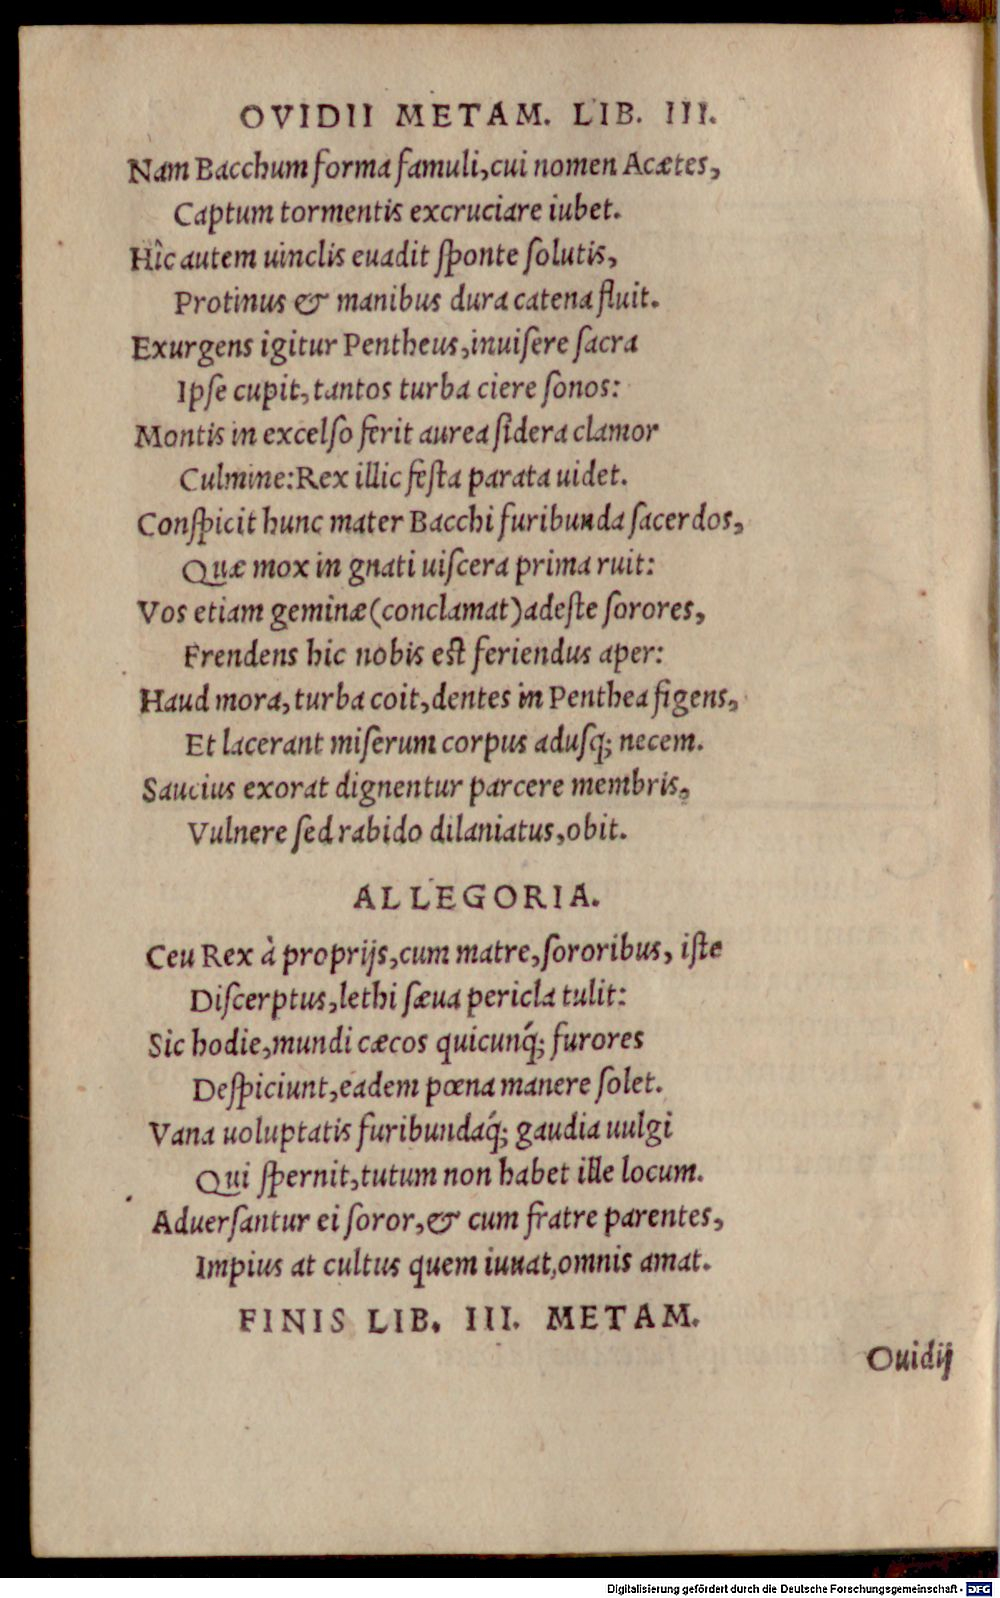 OVIDII METAM. LIB. III.
Nam Bacchum forma famuli, cui nomen Acætes,
Captum tormentis excruciare iubet.
Hîc autem uinclis euadit ſponte ſolutis,
Protinus & manibus dura catena fluit.
Exurgens igitur Pentheus, inuiſere ſacra
Ipſe cupit, tantos turba ciere ſonos:
Montis in excelſo ferit aurea ſidera clamor
Culmine: Rex illic feſta parata uidet.
Conſpicit hunc mater Bacchi furibunda ſacerdos,
Quæ mox in gnati uiſcera prima ruit:
Vos etiam geminæ (conclamat) adeſte ſorores,
Frendens hic nobis eſt feriendus aper:
Haud mora, turba coit, dentes in Penthea figens,
Et lacerant miſerum corpus aduſq; necem.
Saucius exorat dignentur parcere membris,
Vulnere ſed rabido dilaniatus, obit.
ALLEGORIA.
Ceu Rex à proprijs, cum matre, ſororibus, iſte
Diſcerptus, lethi ſæua pericla tulit:
Sic hodie, mundi cæcos quicunq́; furores
Deſpiciunt, eadem pœna manere ſolet.
Vana uoluptatis furibundaq́; gaudia uulgi
Qui ſpernit, tutum non habet ille locum.
Aduerſantur ei ſoror, & cum fratre parentes,
Impius at cultus quem iuuat, omnis amat.
FINIS LIB. III. METAM.
Ouidij
Digitalisierung gefördert durch die Deutsche Forschungsgemeinschaft - DFG